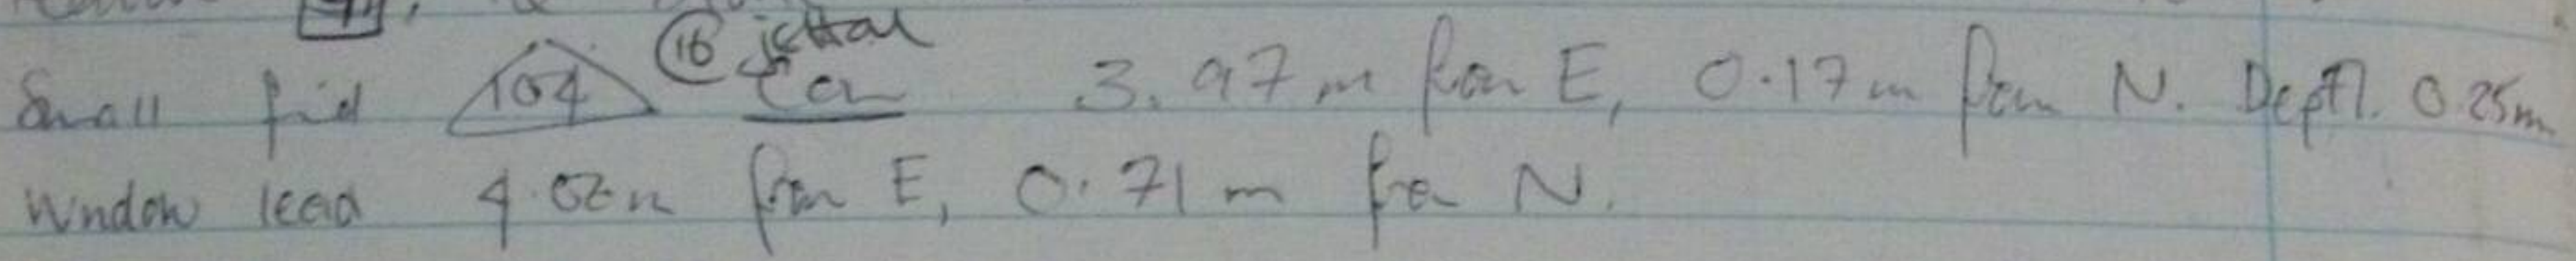 Small find 104 16 jettal Coin 3.97m from E, 0.17m from N. Depth. 0.25m
Window lead 4.02m from E, 0.71m from N.